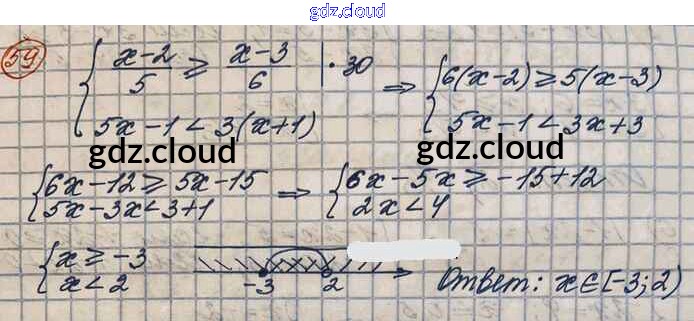 gdz.cloud
59) { (x-2)/5 ≥ (x-3)/6 | · 30
5x-1 < 3(x+1)
=> { 6(x-2) ≥ 5(x-3)
5x-1 < 3x+3
gdz.cloud gdz.cloud
{ 6x-12 ≥ 5x-15 => { 6x-5x ≥ -15+12
5x-3x < 3+1 2x < 4
{ x ≥ -3
x < 2
-3 2
Ответ: x∈[-3; 2)